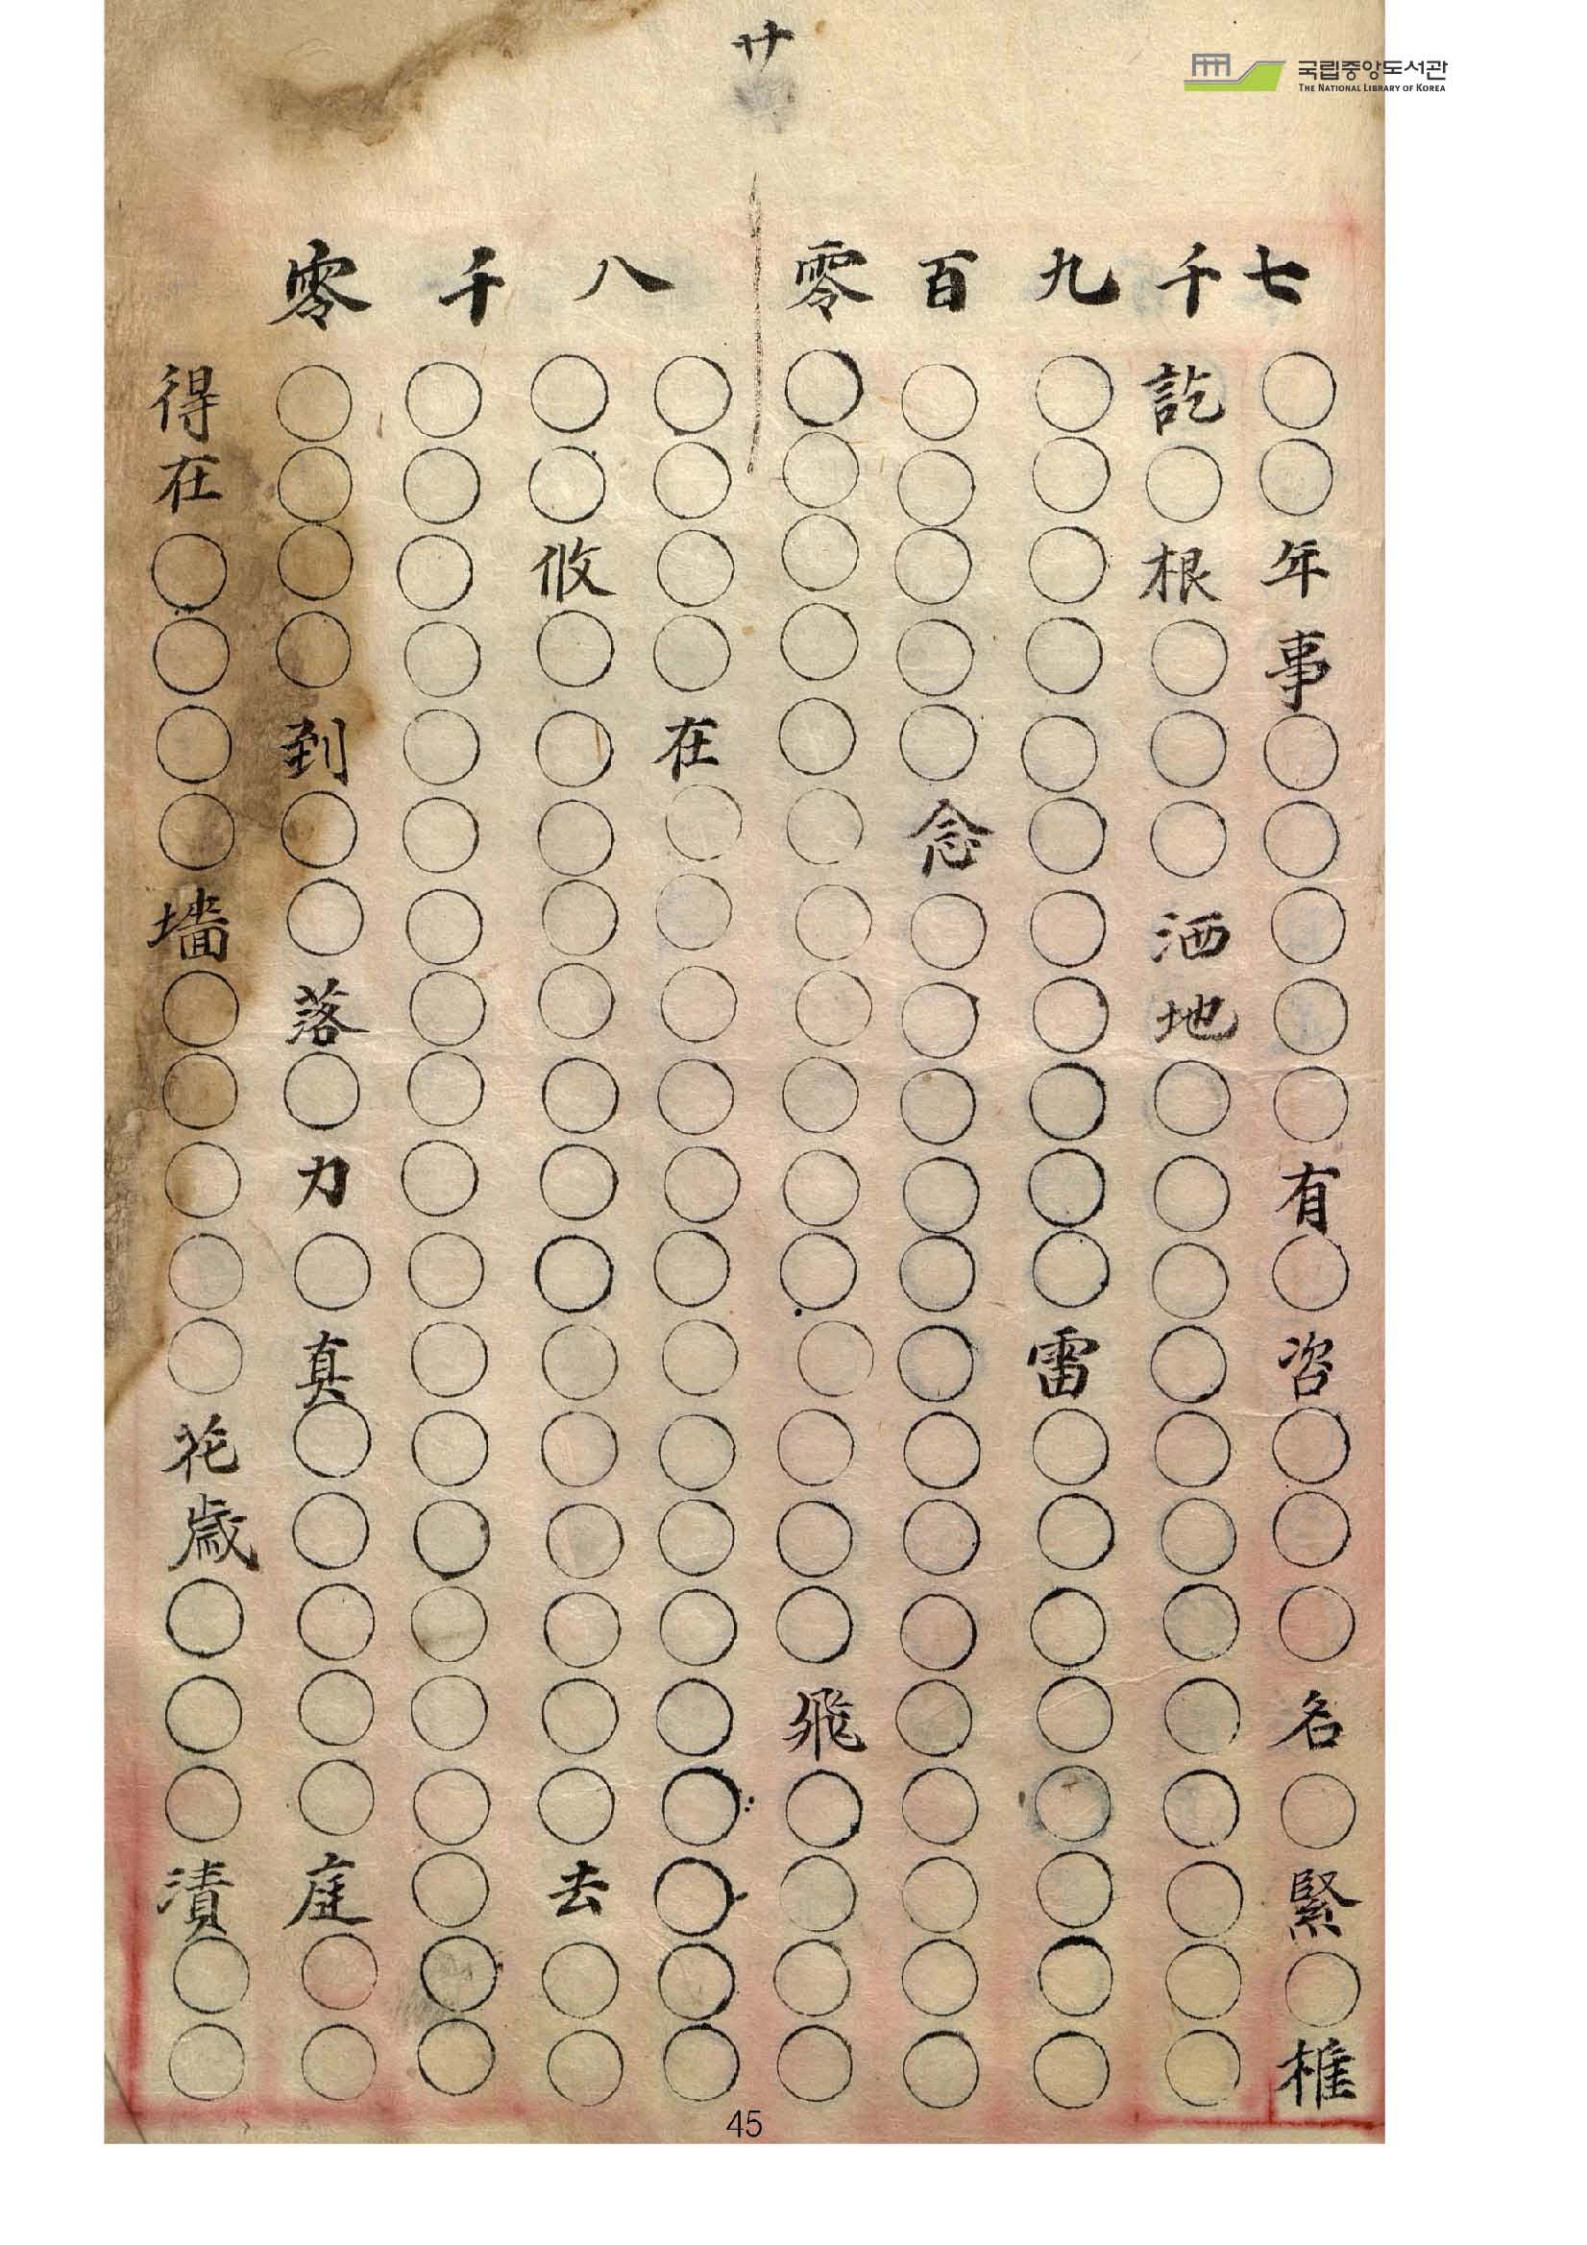 廿
국립중앙도서관
THE NATIONAL LIBRARY OF KOREA
七千九百零
八千零
○○年事○○○○○有○咨○○○名○緊○椎
訖○根○○○洒地○○○○○○○○○○○○
○○○○○○○○○○○雷○○○○○○○○
○○○○○念○○○○○○○○○○○○○○
○○○○○○○○○○○○○○○飛○○○○
○○○○在○○○○○○○○○○○○○○○
○○攸○○○○○○○○○○○○○○去○○
○○○○○○○○○○○○○○○○○○○○
○○○○到○○落○力○真○○○○○庭○○
得在○○○○墻○○○○○花歳○○○漬○○
45